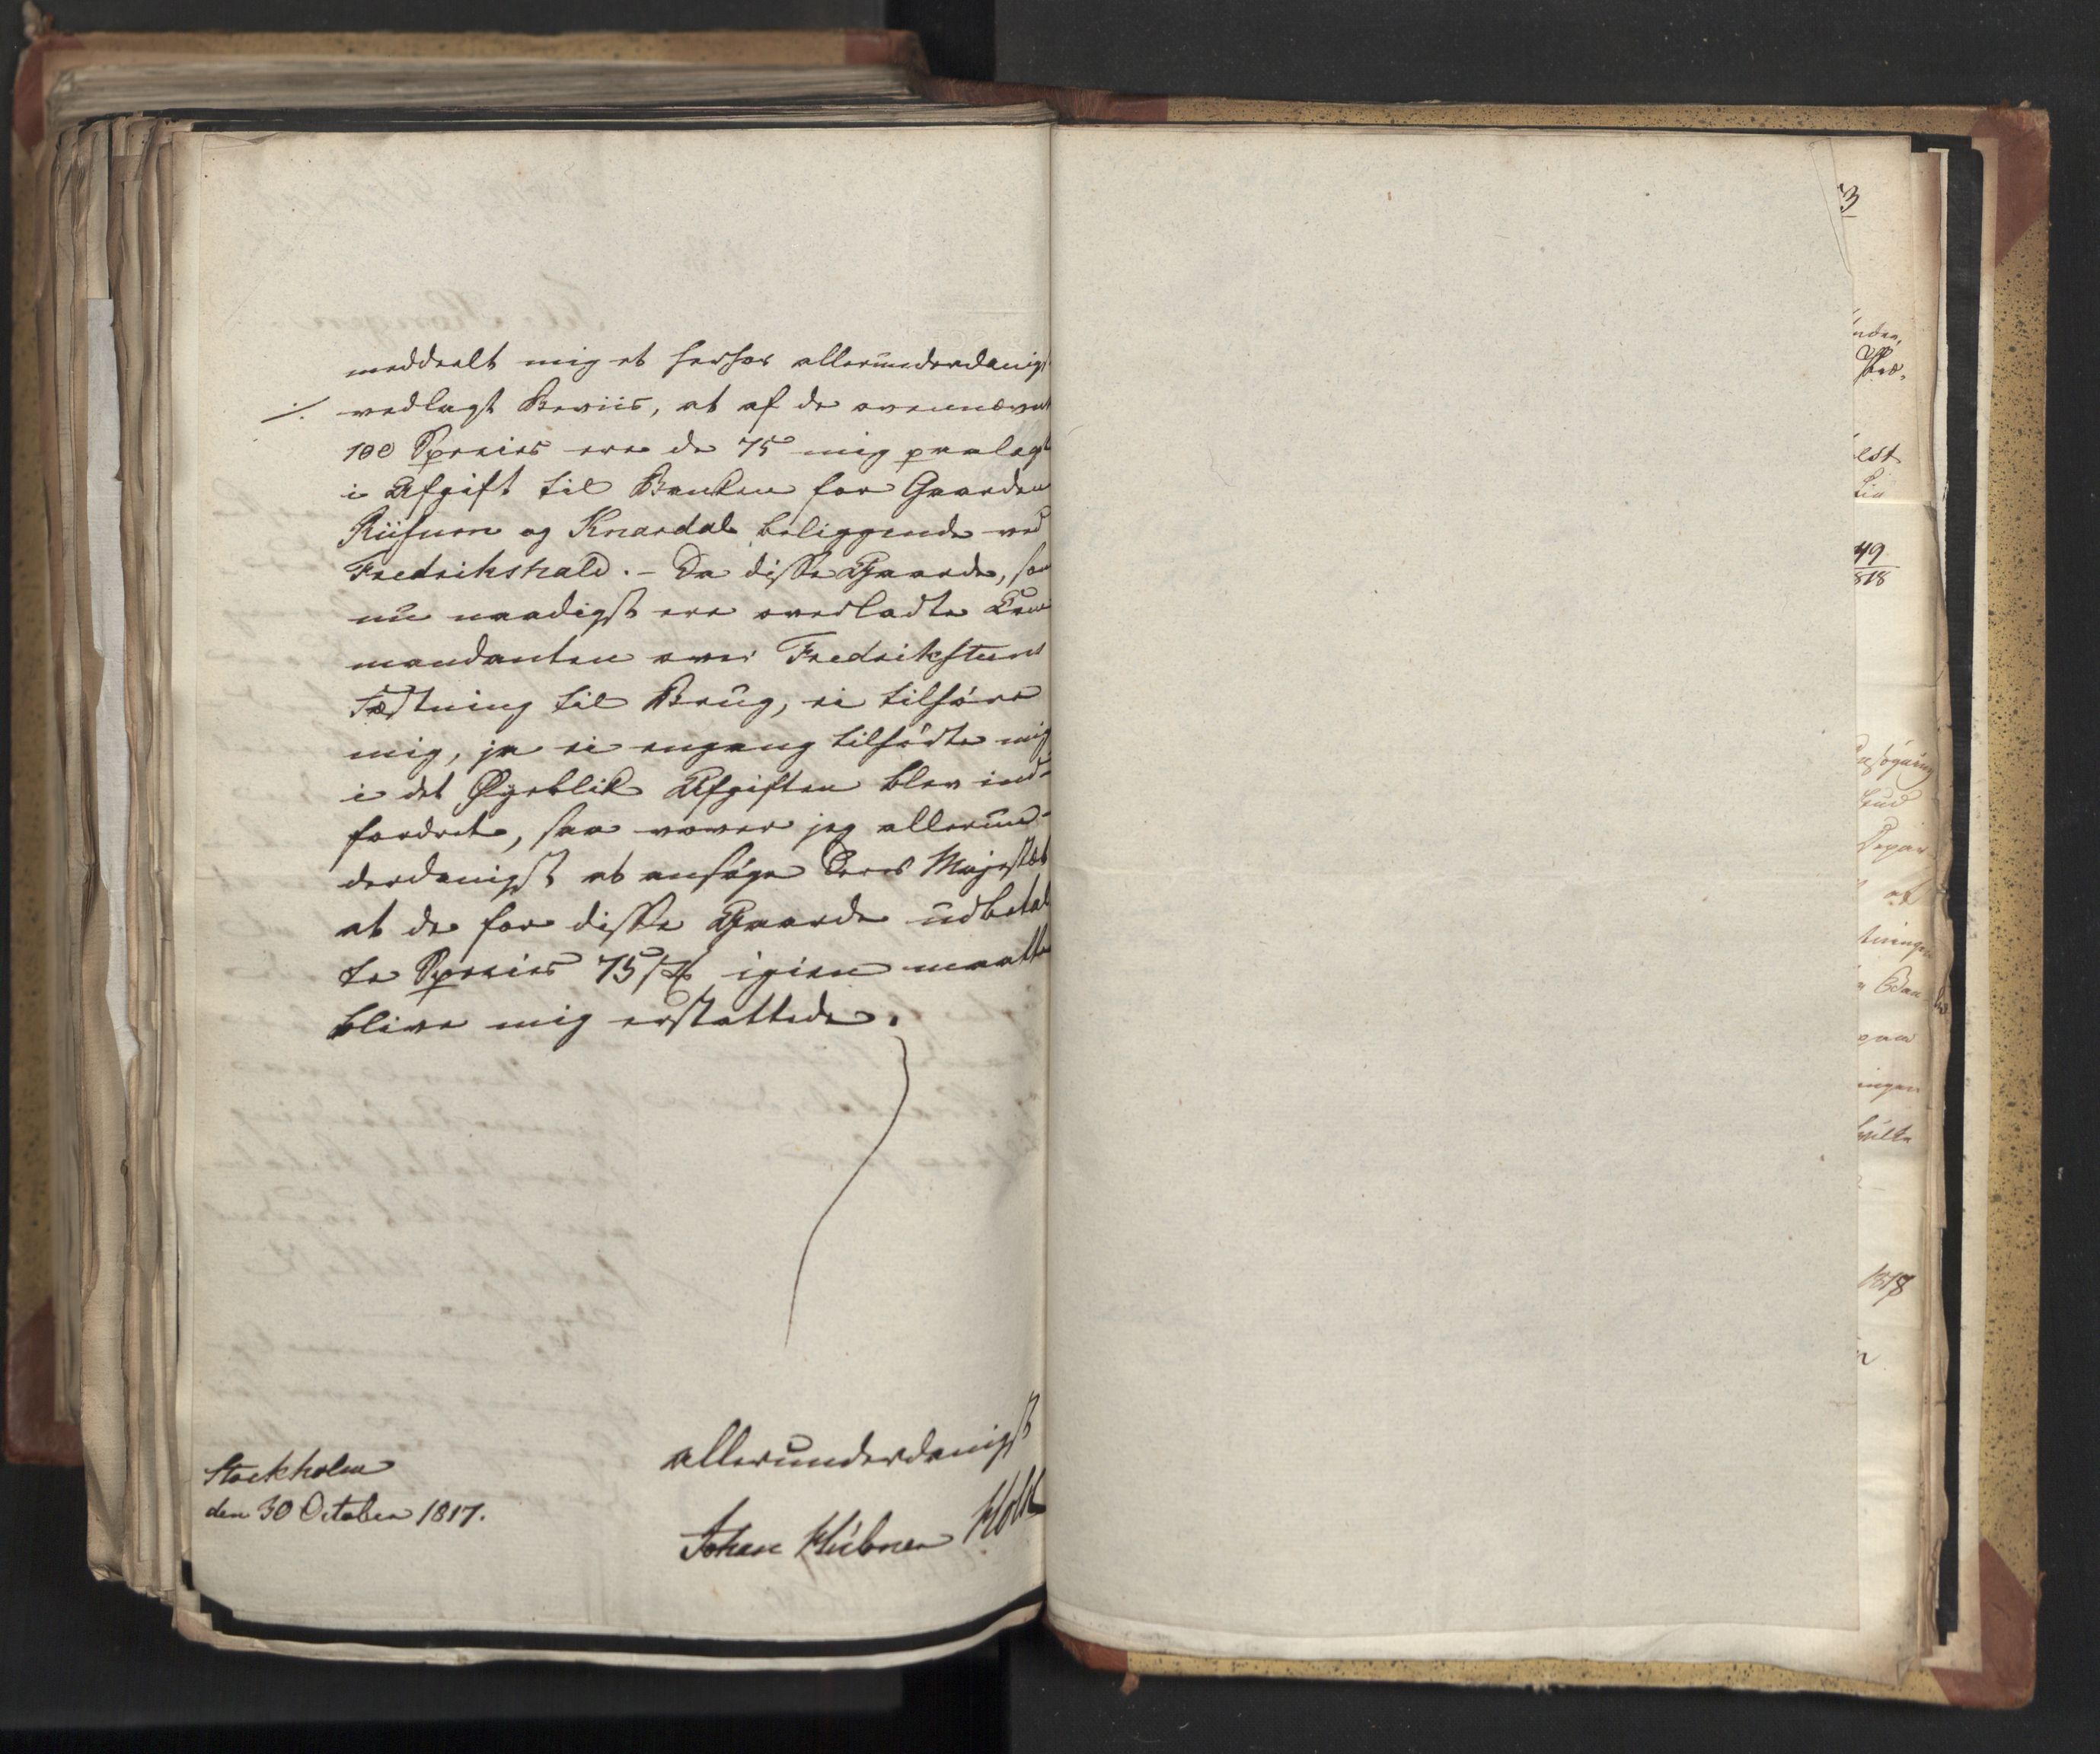 meddeelt mig et herhos allerunderdanigst
·/. vedlagt Beviis, at af de ovennævnte
100 Species ere de 75 mig paalagt
i Afgift til Banken for Gaarden
Riisum og Knardal beliggende ved
Fredrikshald. - Da disse Gaarde, som
nu naadigst ere overladte Com
mandanten over Fredriksteens
Fæstning til Brug, ei tilhøre
mig, ja ei engang tilhørte mig
i det Øyeblik Afgiften blev ind-
fordret, saa vover jeg allerun-
derdanigst at ansøge Deres Majestæt
at de for disse Gaarde udbetal
te Species 75 igien maatte
blive mig erstattede.
allerunderdanigst
Johan Hübner Holst
Stockholm
den 30 October 1817.
3
est
49
818
ansøgning
Depar
at
tningen
paa
ingen
hvilke
1818